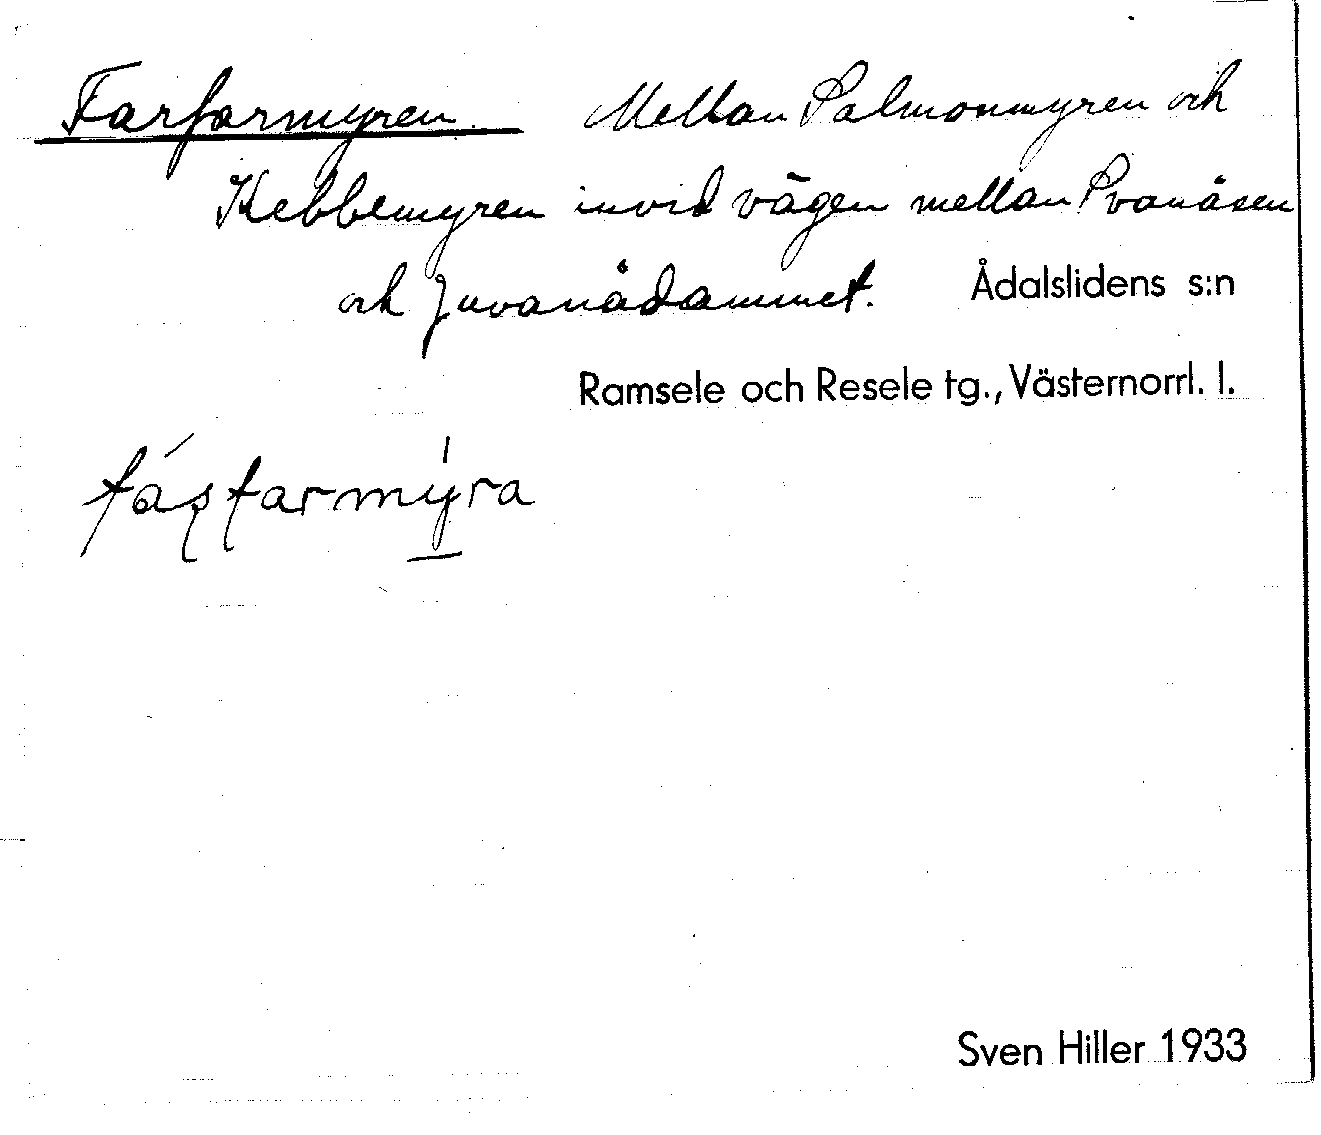 Farfarmyren. Mellan Salmonmyren och
Kebbemyren invid vägen mellan Svanåsen
och Juvanådammet. Ådalslidens s:n
Ramsele och Resele tg., Västernorrl. l.
Sven Hiller 1933